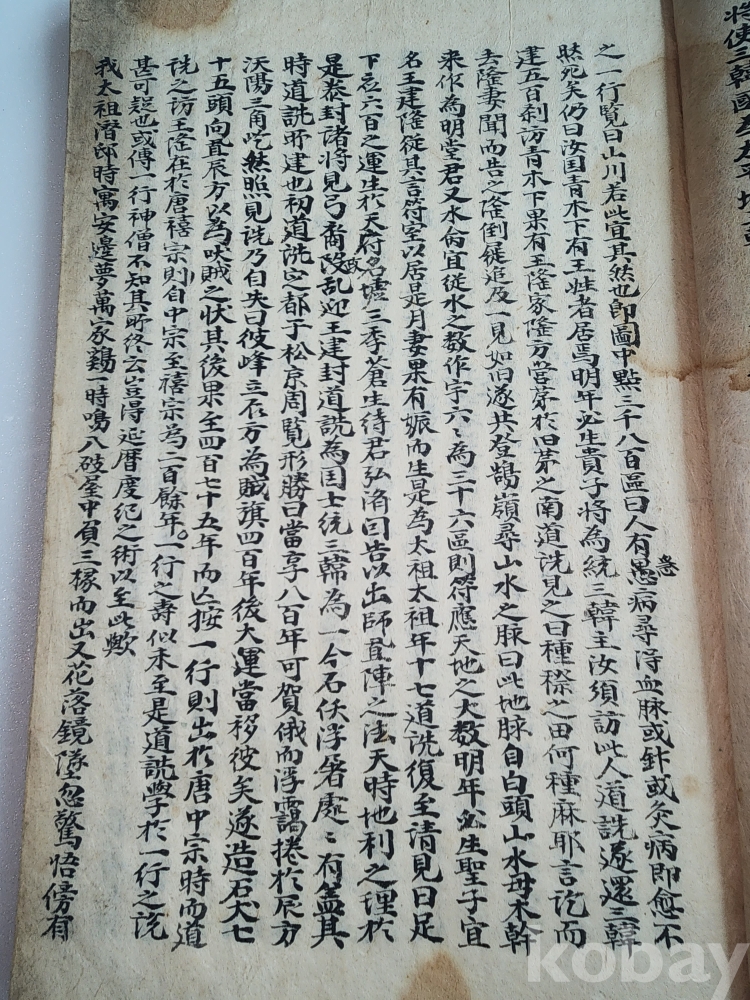 之一行覽曰山川若此宜其然也卽圖中點三千八百區曰人有愚病尋得血脉或針或灸病卽愈不
然死矣仍曰汝国青木下有王姓者居焉明年必生貴子將爲統三韓主汝須訪此人道詵遂還三韓
建五百刹訪青木下果有王隆家隆方营茅於旧茅之南道詵見之曰種穄之田何種麻耶言訖而
去隆妻聞而告之隆倒屣追及一見如旧遂共登鵠嶺尋山水之脉曰此地脉自白頭山水母木幹
来作爲明堂君又水命宜従水之数作宇六〻爲三十六區則符應天地之大数明年必生聖子宜
名王建隆従其言符室以居是月妻果有娠而生是爲太祖太祖年十七道詵復至請見曰足
下應六百之運生於天府名墟三季蒼生待君弘济因告以出師置陣之法天時地利之理於
是泰封諸將見弓裔政乱迎王建封道詵爲国士統三韓爲一今石佛浮屠處〻有盖其
時道詵所建也初道詵定都于松京周覽形勝曰當享八百年可賀俄而浮靄捲於辰方
汉陽三角屹然照見詵乃自失曰彼峰立辰方爲賊旗四百年後大運當移彼矣遂造石犬七
十五頭向置辰方以爲吠賊之状其後果至四百七十五年而亡按一行則出於唐中宗時而道
詵之訪王隆在於唐禧宗則自中宗至禧宗爲二百餘年一行之壽似未至是道詵學於一行之説
甚可疑也或傳一行神僧不知其所終云豈得延暦度紀之術以至此歟
我太祖潜邸時寓安邊夢萬家鷄一時鳴入破屋中負三椽而出又花落鏡墜忽驚悟傍有
將使三韓
kobay